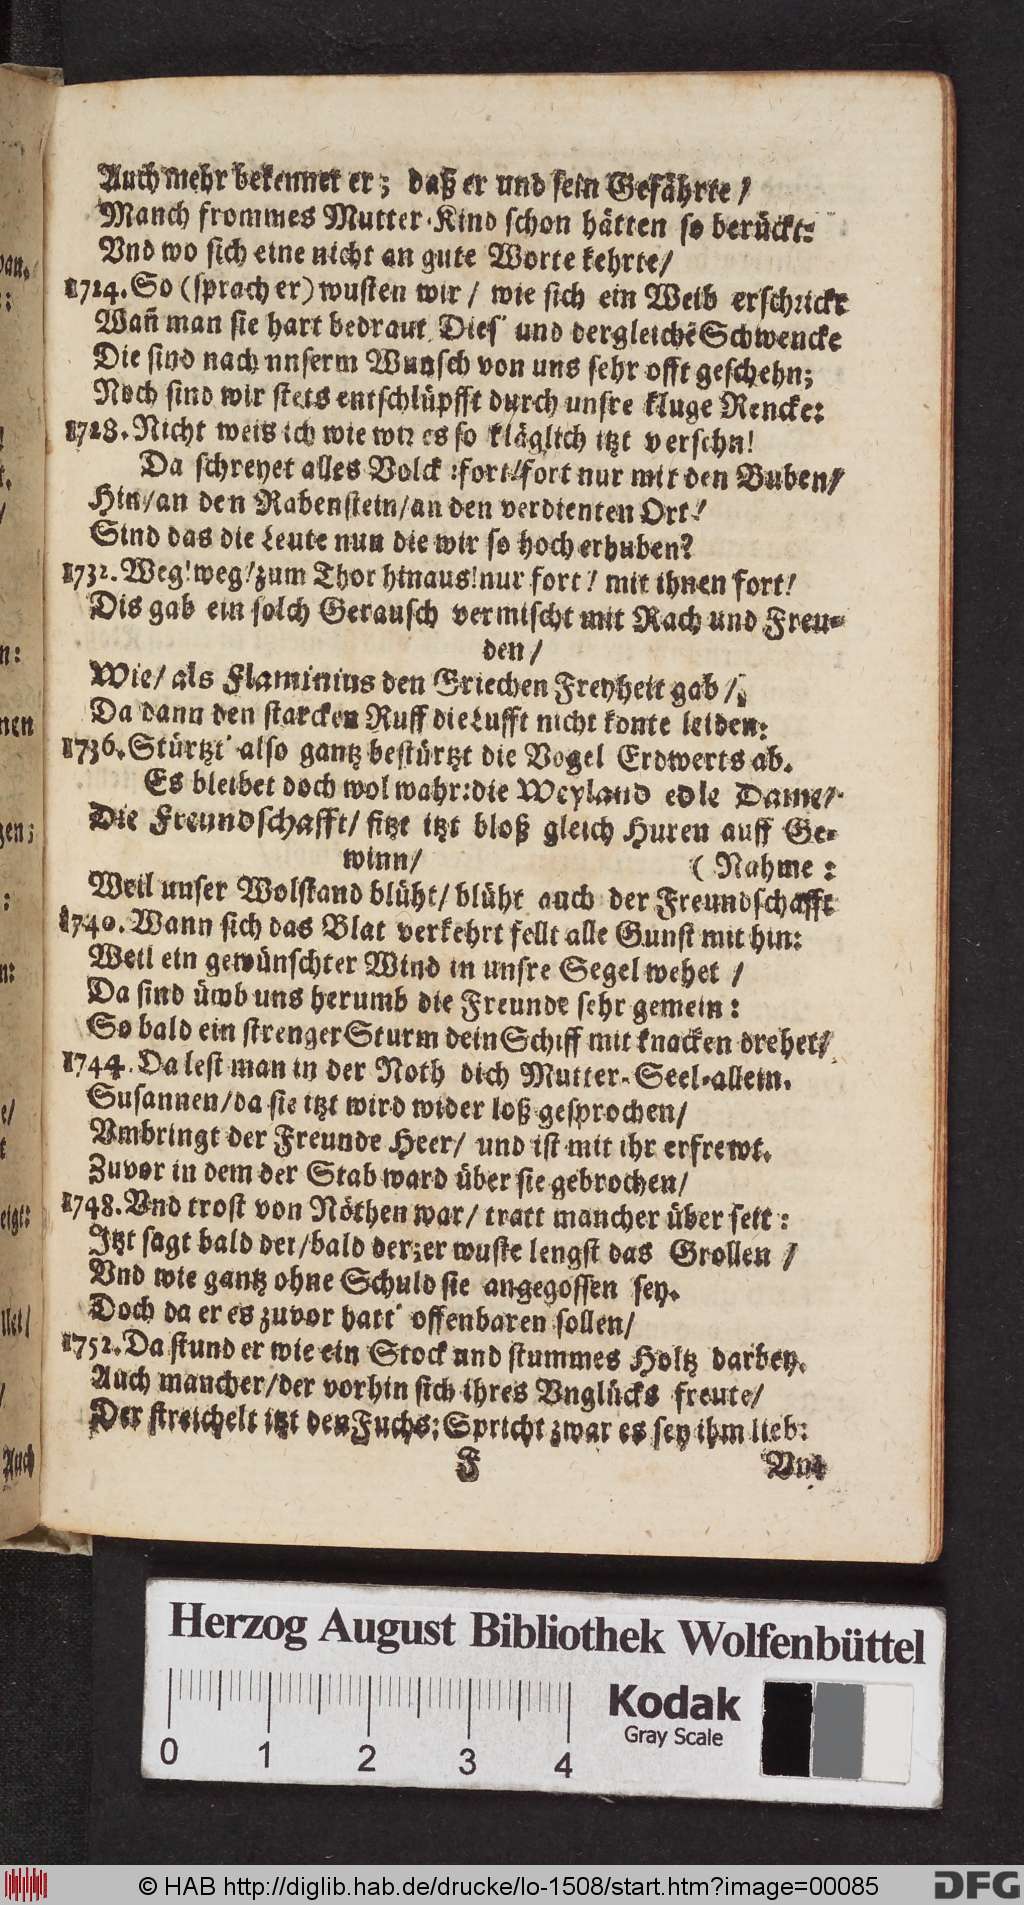 Auch mehr bekennet er; daß er und sein Gefährte/
Manch frommes Mutter-Kind schon hätten so berückt:
Vnd wo sich eine nicht an gute Worte kehrte/
1724. So (sprach er) wusten wir/ wie sich ein Weib erschrickt
Wañ man sie hart bedraut. Dies' und dergleichẽ Schwencke
Die sind nach nnserm Wunsch von uns sehr offt geschehn;
Noch sind wir stets entschlüpfft durch unsre kluge Rencke:
1728. Nicht weis ich wie wir es so kläglich itzt versehn!
Da schreyet alles Volck: fort/ fort nur mit den Buben/
Hin/ an den Rabenstein/ an den verdienten Ort!
Sind das die Leute nun die wir so hoch erhuben?
1732. Weg! weg! zum Thor hinaus! nur fort! mit ihnen fort!
Dis gab ein solch Gerausch vermischt mit Rach und Freu-
den/
Wie/ als Flaminius den Griechen Freyheit gab/
Da dann den starcken Ruff die Lufft nicht konte leiden:
1736. Stürtzt' also gantz bestürtzt die Vogel Erdwerts ab.
Es bleibet doch wol wahr: die Weyland edle Dame/
Die Freundschafft/ sitzt itzt bloß gleich Huren auff Ge-
winn/ (Nahme:
Weil unser Wolstand blüht/ blüht auch der Freundschafft
1740. Wann sich das Blat verkehrt fellt alle Gunst mit hin:
Weil ein gewünschter Wind in unsre Segel wehet /
Da sind üwb uns herumb die Freunde sehr gemein:
So bald ein strenger Sturm dein Schiff mit knacken drehet/
1744. Da lest man in der Noth dich Mutter-Seel-allein.
Susannen/ da sie itzt wird wider loß gesprochen/
Vmbringt der Freunde Heer/ und ist mit ihr erfrewt.
Zuvor in dem der Stab ward über sie gebrochen/
1748. Vnd trost von Nöthen war/ tratt mancher über seit:
Itzt sagt bald der/ bald der; er wuste lengst das Grollen /
Vnd wie gantz ohne Schuld sie angegossen sey.
Doch da er es zuvor hatt' offenbaren sollen/
1752. Da stund er wie ein Stock und stummes Holtz darbey.
Auch mancher/ der vorhin sich ihres Vnglücks freute/
Der streichelt itzt den Fuchs: Spricht zwar es sey ihm lieb:
F Vnd
Herzog August Bibliothek Wolfenbüttel
Kodak
Gray Scale
0 1 2 3 4
© HAB http://diglib.hab.de/drucke/lo-1508/start.htm?image=00085
DFG